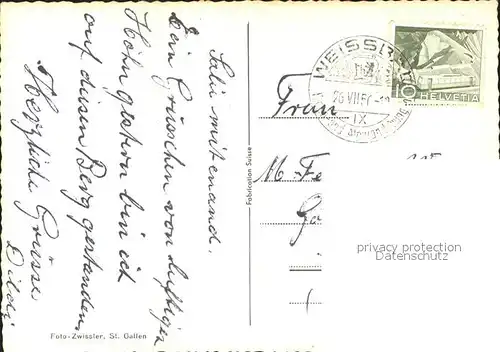 Salü mitenand.
Ein Grüschen von luftiger
Höhn gestern bin ich
auf diesen Berg gestanden.
Herzliche Grüsse
Foto-Zwissler, St. Gallen
Fabrication Suisse
WEISSB
26 VII 5
IX
10 HELVETIA
Frau
M. Fe
Ga
privacy protection
Datenschutz